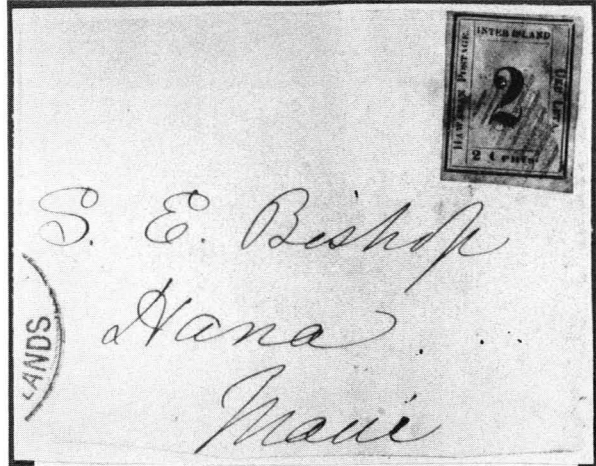 INTER ISLAND
HAWAIIAN POSTAGE.
2
UKU LETA.
2 Cents.
S. E. Bishop
Hana
Maui
ANDS